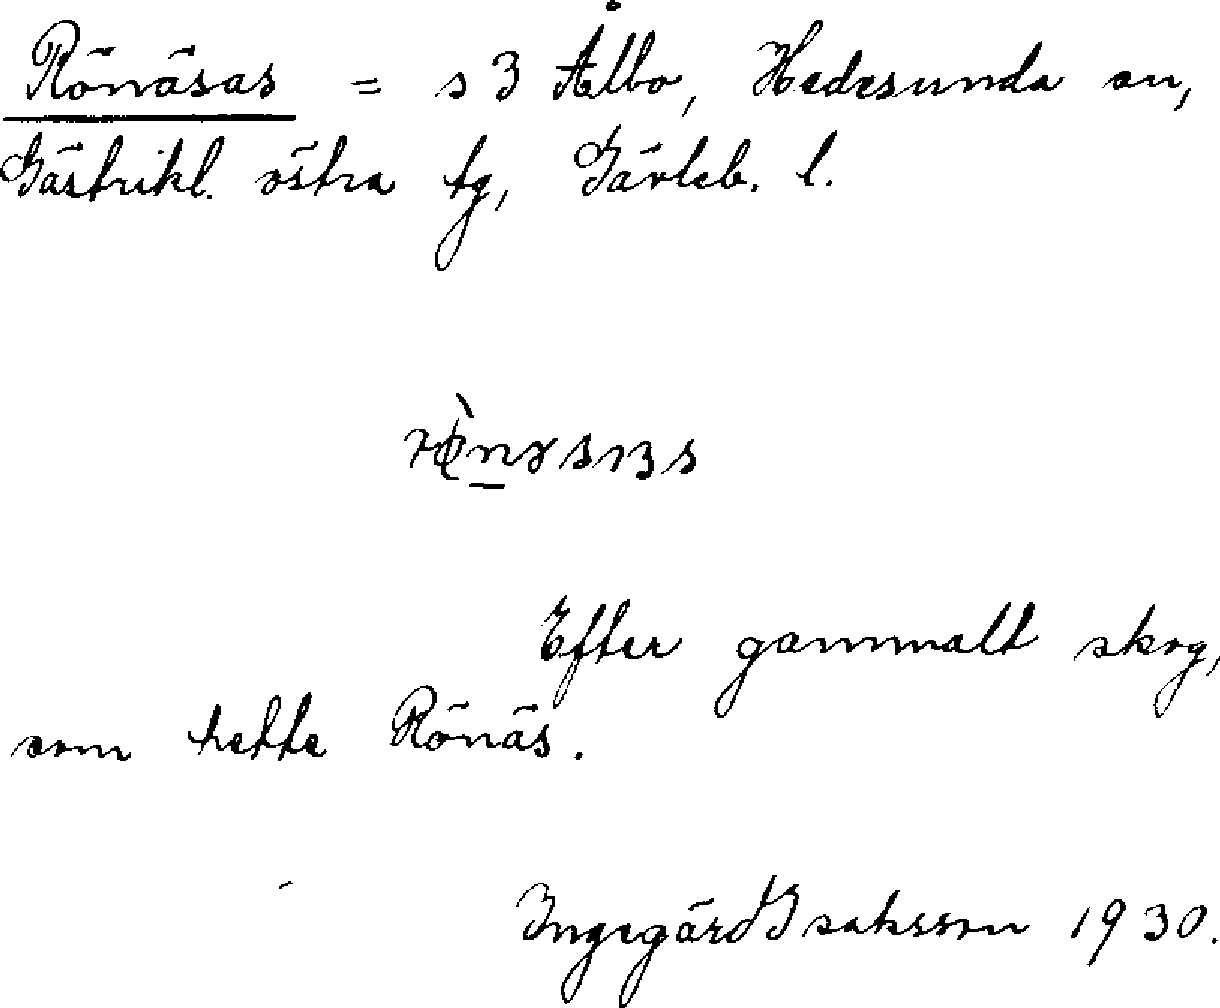 Rönäsas = s 3 Ålbo, Hedesunda sn,
Gästrikl. östra tg, Gävleb. l.
Efter gammalt skog,
som hette Rönäs.
Ingegärd Isaksson 1930.